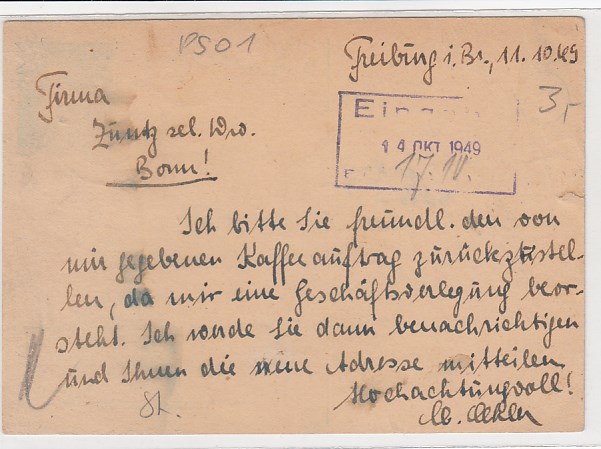 PS01
Freiburg i. Br., 11. 10. 49
Firma
Zuntz sel. Wwe.
Bonn!
3,-
14 OKT 1949
17. 10.
Ich bitte Sie freundl. den von
mir gegebenen Kaffeeauftrag zurückzustel-
len, da mir eine Geschäftsverlegung bevor-
steht. Ich werde Sie dann benachrichtigen
und Ihnen die neue Adresse mitteilen
Hochachtungvoll!